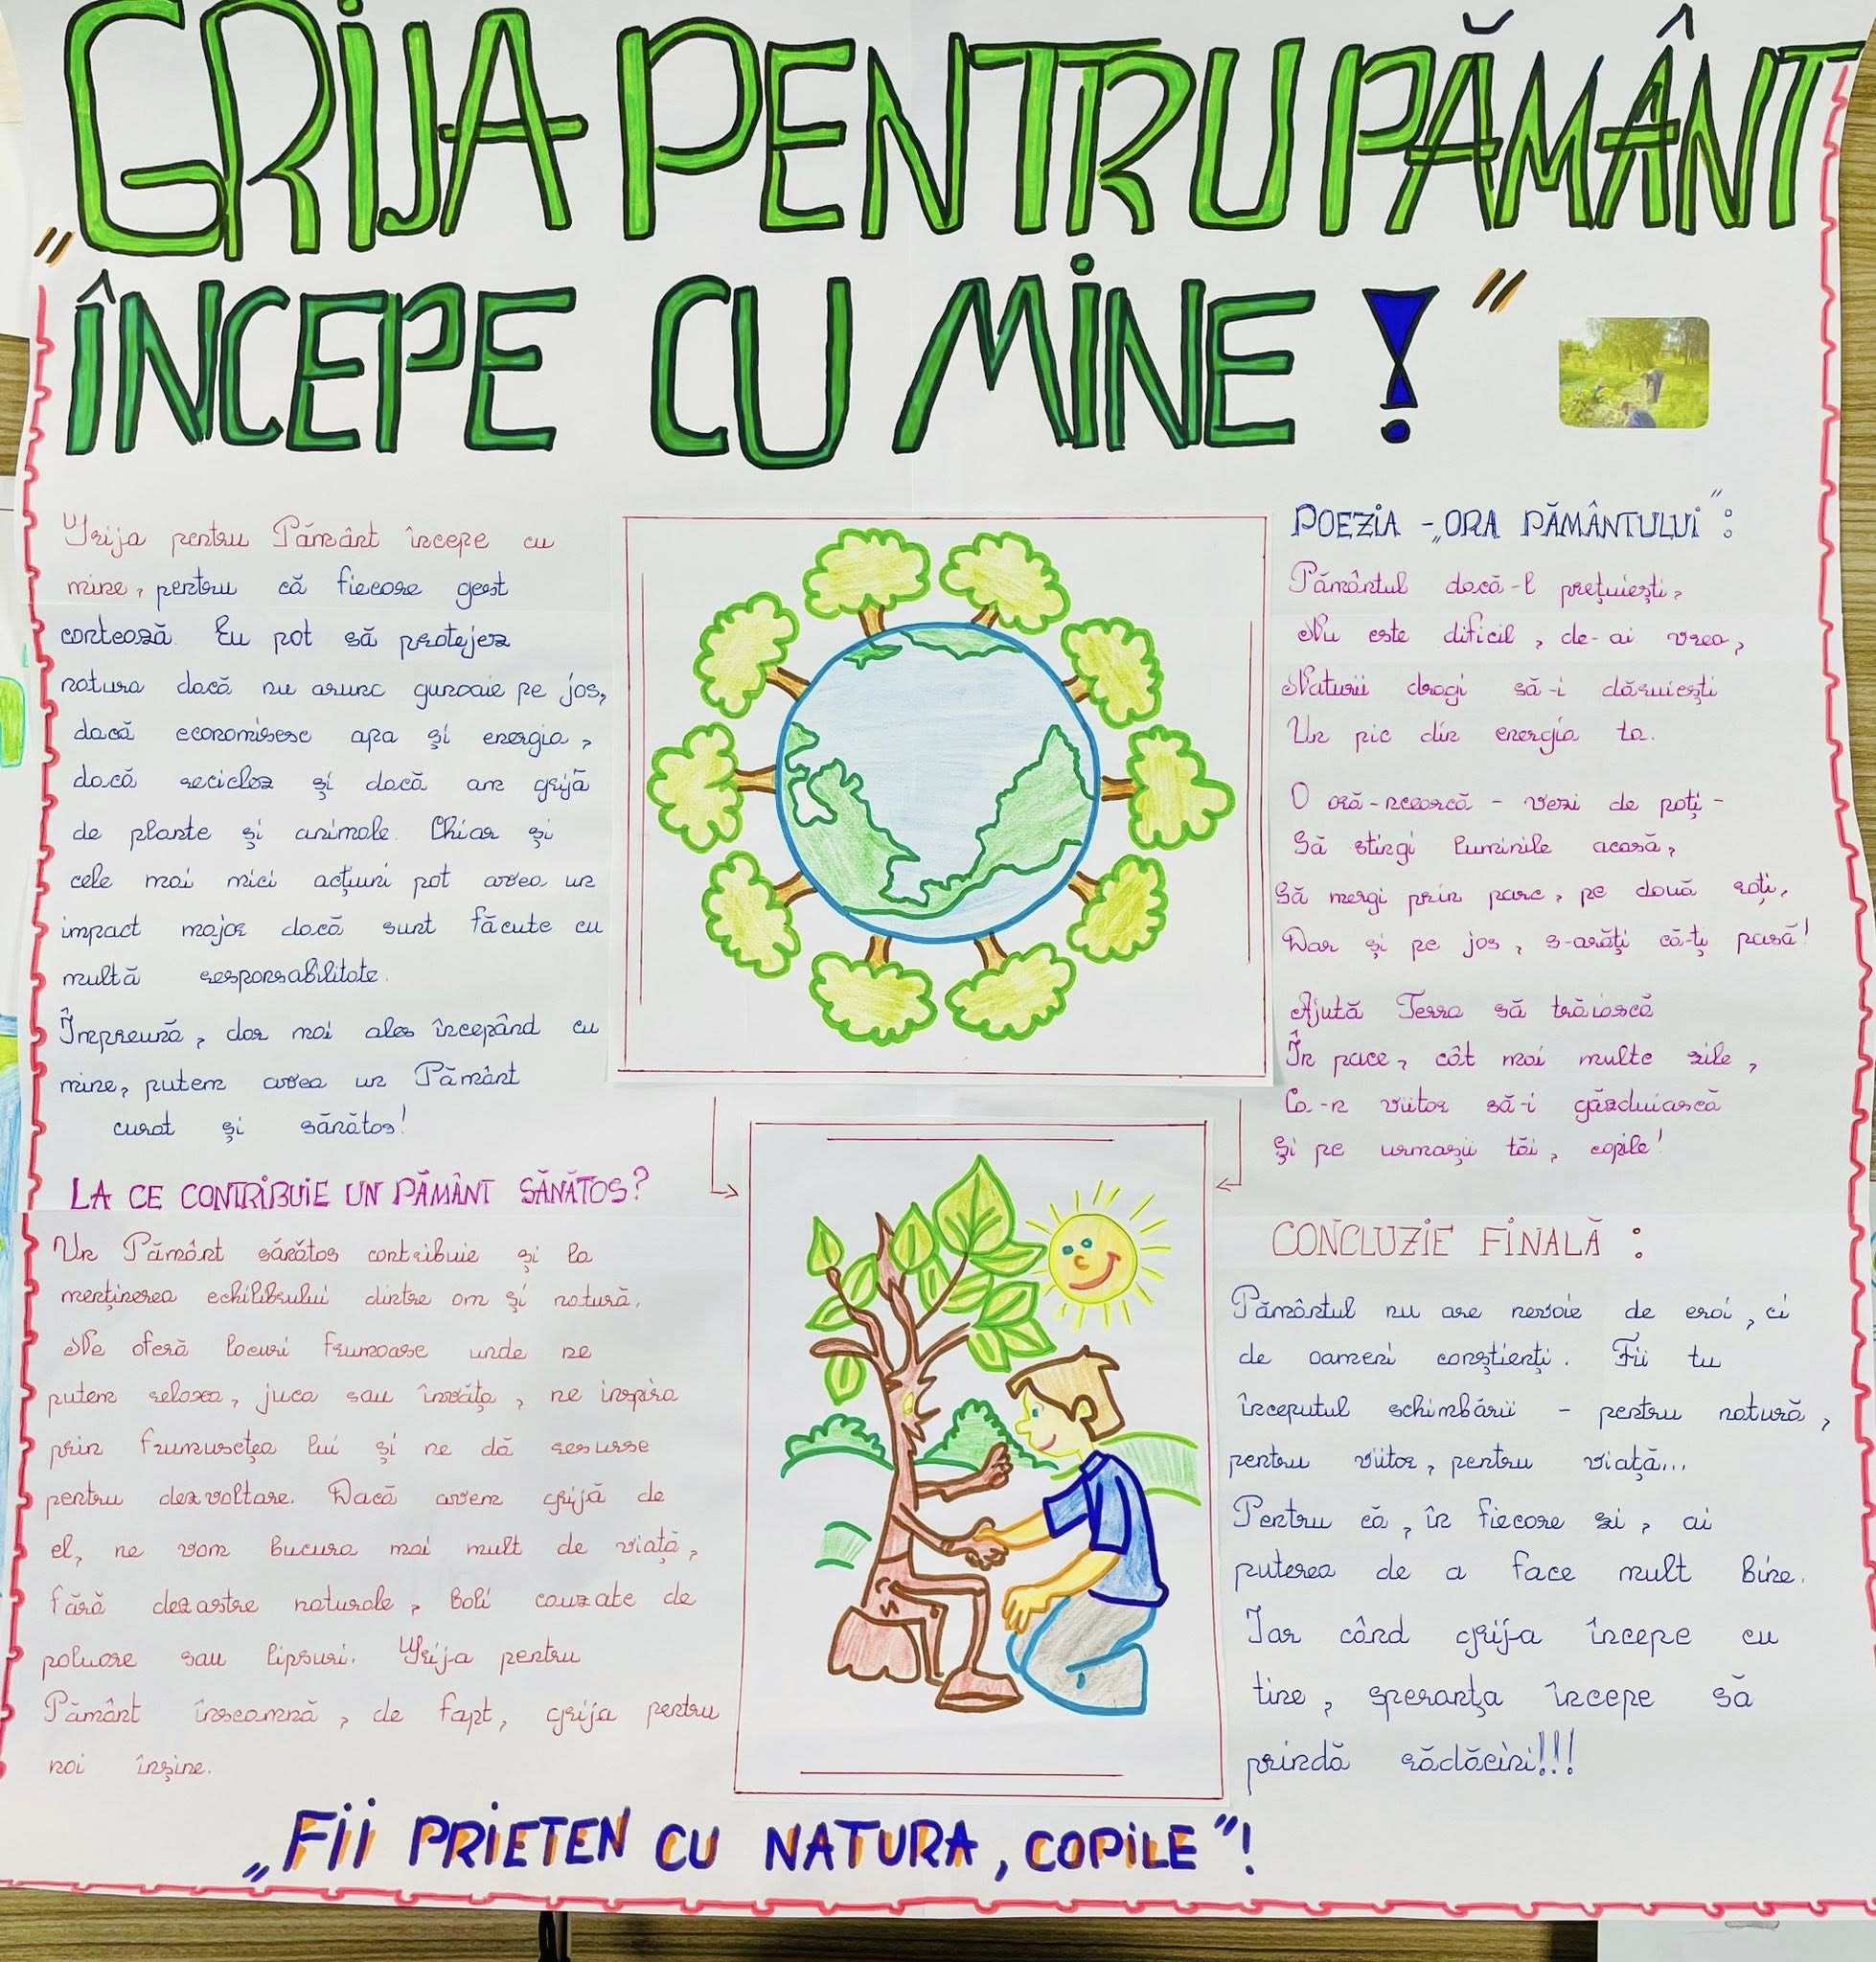 „GRIJA PENTRU PĂMÂNT
ÎNCEPE CU MINE!”
Grija pentru Pământ începe cu
mine, pentru că fiecare gest
contează. Eu pot să protejez
natura dacă nu arunc gunoaie pe jos,
dacă economisesc apa și energia,
dacă reciclez și dacă am grijă
de plante și animale. Chiar și
cele mai mici acțiuni pot avea un
impact major dacă sunt făcute cu
multă responsabilitate.
Împreună, dar mai ales începând cu
mine, putem avea un Pământ
curat și sănătos!
LA CE CONTRIBUIE UN PĂMÂNT SĂNĂTOS?
Un Pământ sănătos contribuie și la
menținerea echilibrului dintre om și natură.
Ne oferă locuri frumoase unde ne
putem relaxa, juca sau învăța, ne inspira
prin frumusețea lui și ne dă resurse
pentru dezvoltare. Dacă avem grijă de
el, ne vom bucura mai mult de viață,
fără dezastre naturale, boli cauzate de
poluare sau lipsuri. Grija pentru
Pământ înseamnă, de fapt, grija pentru
noi înșine.
POEZIA - „ORA PĂMÂNTULUI”:
Pământul dacă-l prețuiești,
Nu este dificil, de-ai vrea,
Naturii dragi să-i dăruiești
Un pic din energia ta.
O oră-ncearcă - vezi de poți -
Să stingi luminile acasă,
Să mergi prin parc, pe două roți,
Dar și pe jos, s-arăți că-ți pasă!
Ajută Terra să trăiască
În pace, cât mai multe zile,
Ca-n viitor să-i găzduiască
Și pe urmașii tăi, copile!
CONCLUZIE FINALĂ:
Pământul nu are nevoie de eroi, ci
de oameni conștienți. Fii tu
începutul schimbării - pentru natură,
pentru viitor, pentru viață...
Pentru că, în fiecare zi, ai
puterea de a face mult bine.
Iar când grija începe cu
tine, speranța începe să
prindă rădăcini!!!
„FII PRIETEN CU NATURA, COPILE”!